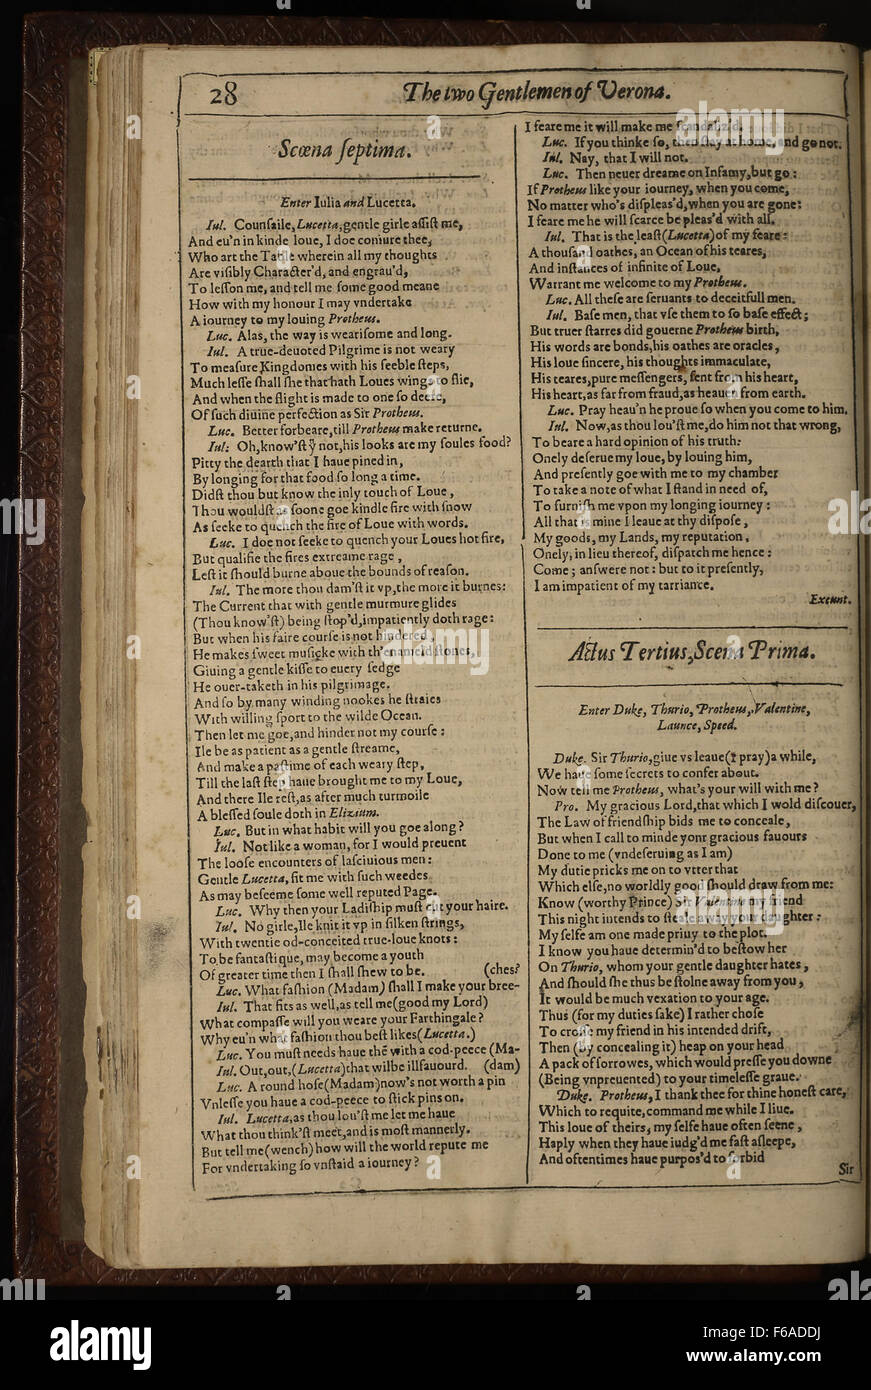 28
The two Gentlemen of Verona.
Scœna ſeptima.
Enter Iulia and Lucetta.
Iul. Counſaile, Lucetta, gentle girle aſſiſt me,
And eu'n in kinde loue, I doe coniure thee,
Who art the Table wherein all my thoughts
Are viſibly Character'd, and engrau'd,
To leſſon me, and tell me ſome good meane
How with my honour I may vndertake
A iourney to my louing Protheus.
Luc. Alas, the way is weariſome and long.
Iul. A true-deuoted Pilgrime is not weary
To meaſure Kingdomes with his feeble ſteps,
Much leſſe ſhall ſhe that hath Loues wings to flie,
And when the flight is made to one ſo deere,
Of ſuch diuine perfection as Sir Protheus.
Luc. Better forbeare, till Protheus make returne.
Iul: Oh, know'ſt yͧ not, his looks are my ſoules food?
Pitty the dearth that I haue pined in,
By longing for that food ſo long a time.
Didſt thou but know the inly touch of Loue,
Thou wouldſt as ſoone goe kindle fire with ſnow
As ſeeke to quench the fire of Loue with words.
Luc. I doe not ſeeke to quench your Loues hot fire,
But qualifie the fires extreame rage,
Leſt it ſhould burne aboue the bounds of reaſon.
Iul. The more thou dam'ſt it vp, the more it burnes:
The Current that with gentle murmure glides
(Thou know'ſt) being ſtop'd, impatiently doth rage:
But when his faire courſe is not hindered,
He makes ſweet muſicke with th'enameld ſtones,
Giuing a gentle kiſſe to euery ſedge
He ouer-taketh in his pilgrimage.
And ſo by many winding nookes he ſtraies
With willing ſport to the wilde Ocean.
Then let me goe, and hinder not my courſe:
Ile be as patient as a gentle ſtreame,
And make a paſtime of each weary ſtep,
Till the laſt ſtep haue brought me to my Loue,
And there Ile reſt, as after much turmoile
A bleſſed ſoule doth in Elizium.
Luc. But in what habit will you goe along?
Iul. Not like a woman, for I would preuent
The looſe encounters of laſciuious men:
Gentle Lucetta, fit me with ſuch weedes
As may beſeeme ſome well reputed Page.
Luc. Why then your Ladiſhip muſt cut your haire.
Iul. No girle, Ile knit it vp in ſilken ſtrings,
With twentie od-conceited true-loue knots:
To be fantaſtique, may become a youth
Of greater time then I ſhall ſhew to be. (ches?
Luc. What faſhion (Madam) ſhall I make your bree-
Iul. That fits as well, as tell me (good my Lord)
What compaſſe will you weare your Farthingale?
Why eu'n what faſhion thou beſt likes (Lucetta.)
Luc. You muſt needs haue thē with a cod-peece (Ma-
Iul. Out, out, (Lucetta) that wilbe illfauourd. (dam)
Luc. A round hoſe (Madam) now's not worth a pin
Vnleſſe you haue a cod-peece to ſtick pins on.
Iul. Lucetta, as thou lou'ſt me let me haue
What thou think'ſt meet, and is moſt mannerly.
But tell me (wench) how will the world repute me
For vndertaking ſo vnſtaid a iourney?
I feare me it will make me ſcandaliz'd.
Luc. If you thinke ſo, then ſtay at home, and go not.
Iul. Nay, that I will not.
Luc. Then neuer dreame on Infamy, but go:
If Protheus like your iourney, when you come,
No matter who's diſpleas'd, when you are gone:
I feare me he will ſcarce be pleas'd with all.
Iul. That is the leaſt (Lucetta) of my feare:
A thouſand oathes, an Ocean of his teares,
And inſtances of infinite of Loue,
Warrant me welcome to my Protheus.
Luc. All theſe are ſeruants to deceitfull men.
Iul. Baſe men, that vſe them to ſo baſe effect;
But truer ſtarres did gouerne Protheus birth,
His words are bonds, his oathes are oracles,
His loue ſincere, his thoughts immaculate,
His teares, pure meſſengers, ſent from his heart,
His heart, as far from fraud, as heauen from earth.
Luc. Pray heau'n he proue ſo when you come to him.
Iul. Now, as thou lou'ſt me, do him not that wrong,
To beare a hard opinion of his truth:
Onely deſerue my loue, by louing him,
And preſently goe with me to my chamber
To take a note of what I ſtand in need of,
To furniſh me vpon my longing iourney:
All that is mine I leaue at thy diſpoſe,
My goods, my Lands, my reputation,
Onely, in lieu thereof, diſpatch me hence:
Come; anſwere not: but to it preſently,
I am impatient of my tarriance.
Exeunt.
Actus Tertius, Scena Prima.
Enter Duke, Thurio, Protheus, Valentine,
Launce, Speed.
Duke. Sir Thurio, giue vs leaue (I pray) a while,
We haue ſome ſecrets to confer about.
Now tell me Protheus, what's your will with me?
Pro. My gracious Lord, that which I wold diſcouer,
The Law of friendſhip bids me to conceale,
But when I call to minde your gracious fauours
Done to me (vndeſeruing as I am)
My dutie pricks me on to vtter that
Which elſe, no worldly good ſhould draw from me:
Know (worthy Prince) Sir Valentine my friend
This night intends to ſteale away your daughter:
My ſelfe am one made priuy to the plot.
I know you haue determin'd to beſtow her
On Thurio, whom your gentle daughter hates,
And ſhould ſhe thus be ſtolne away from you,
It would be much vexation to your age.
Thus (for my duties ſake) I rather choſe
To croſſe my friend in his intended drift,
Then (by concealing it) heap on your head
A pack of ſorrowes, which would preſſe you downe
(Being vnpreuented) to your timeleſſe graue.
Duke. Protheus, I thank thee for thine honeſt care,
Which to requite, command me while I liue.
This loue of theirs, my ſelfe haue often ſeene,
Haply when they haue iudg'd me faſt aſleepe,
And oftentimes haue purpos'd to forbid
Sir
alamy
Image ID: F6ADDJ
www.alamy.com